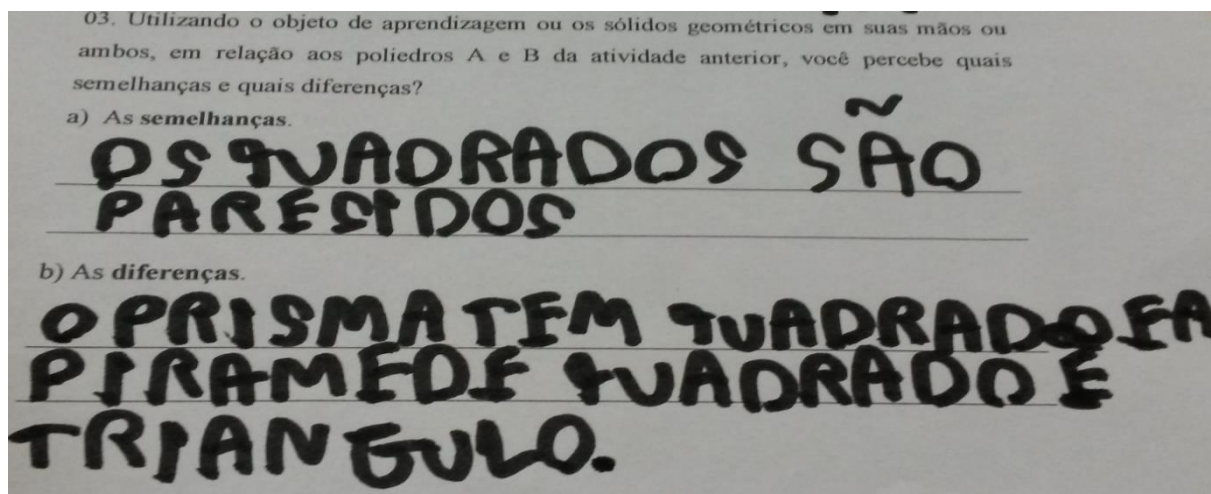 03. Utilizando o objeto de aprendizagem ou os sólidos geométricos em suas mãos ou
ambos, em relação aos poliedros A e B da atividade anterior, você percebe quais
semelhanças e quais diferenças?
a) As semelhanças.
OS QUADRADOS SÃO
PARESIDOS
b) As diferenças.
O PRISMA TEM QUADRADO E A
PIRAMEDE QUADRADO E
TRIANGULO.